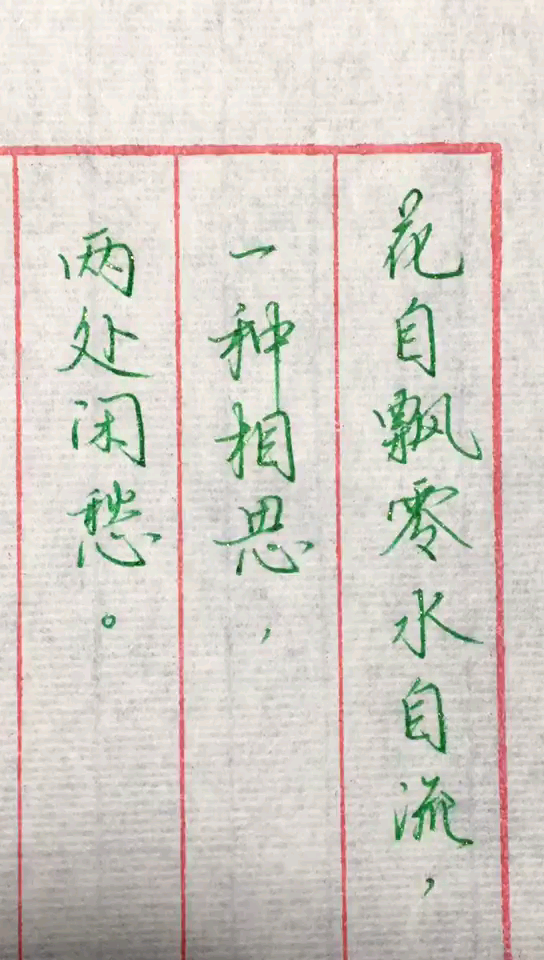 花自飘零水自流，
一种相思，
两处闲愁。